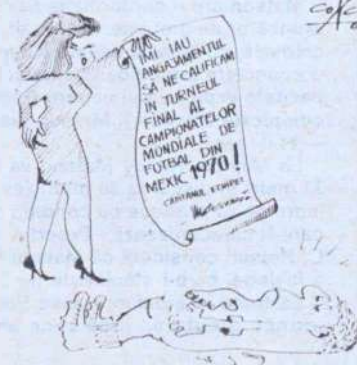 IMI IAU
ANGAJAMENTUL
SĂ NE CALIFICĂM
ÎN TURNEUL
FINAL AL
CAMPIONATELOR
MONDIALE DE
FOTBAL DIN
MEXIC 1970!
CĂPITANUL ECHIPEI